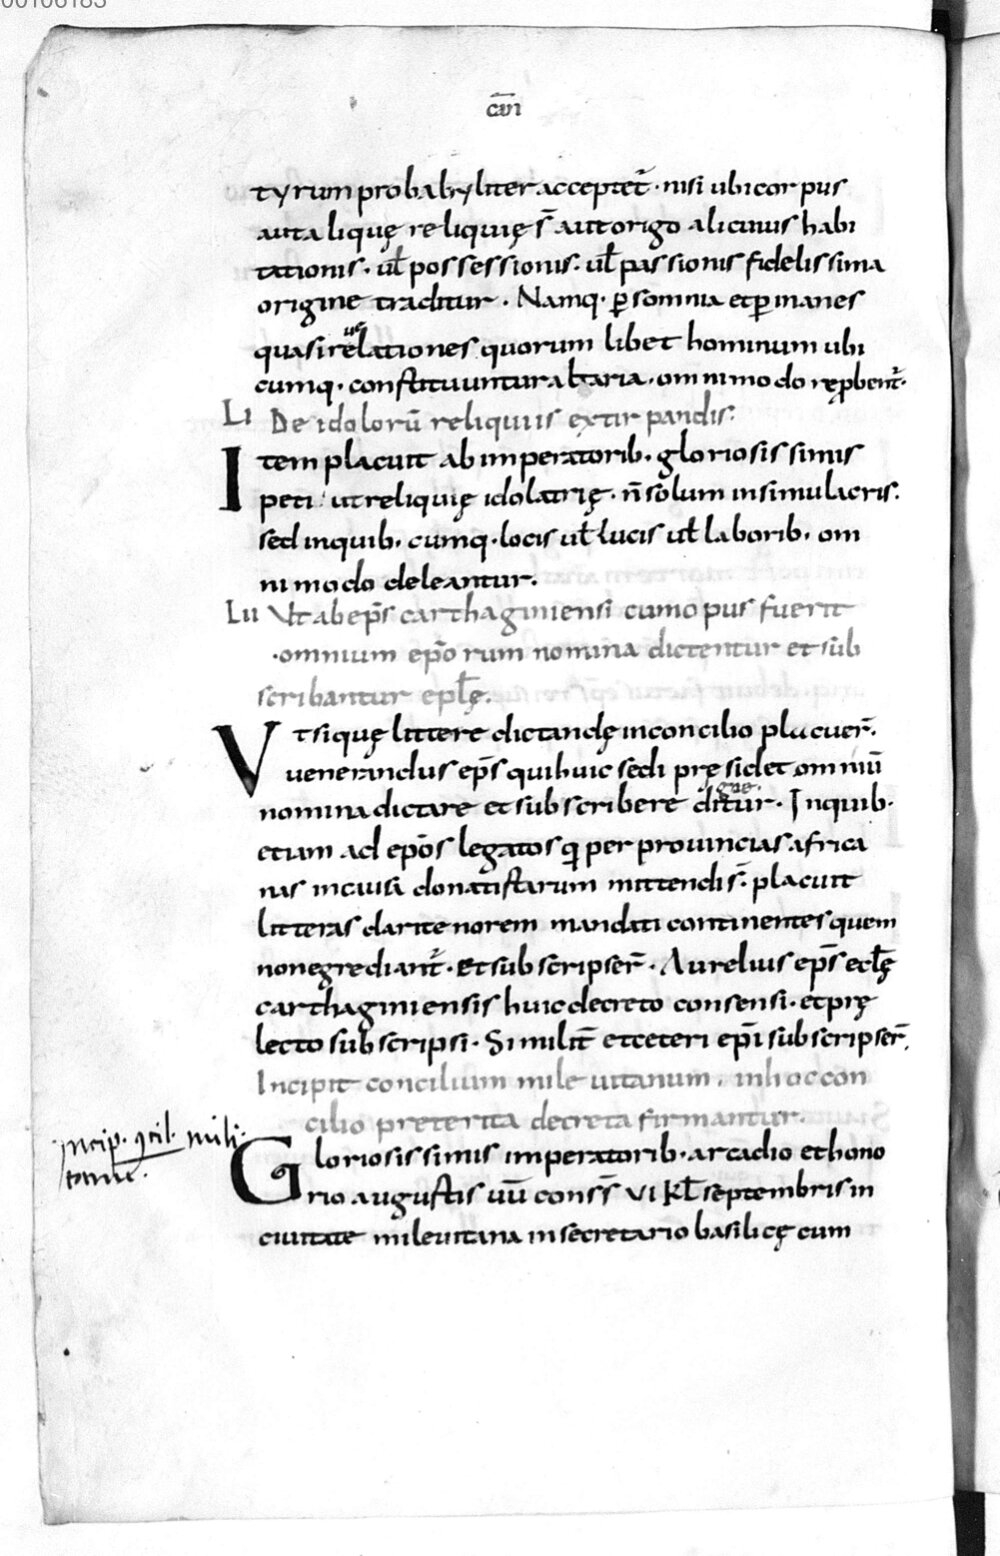 00106183
cvii
tyrum probabyliter acceptet̃ · nisi ubi corpus
aut aliquę reliquię s̃ aut origo alicuius habi
tationis · ul̃ possessionis · ul̃ passionis fidelissima
origine traditur · Namq · ꝑ somnia et ꝑ manes
quasi reuelationes quorum libet hominum ubi
cumq · constituuntur altaria · omnimodo reꝓbent̃ ·
LI De idolorū reliquiis extirpandis ·
Item placuit ab imperatorib · gloriosissimis
peti · ut reliquię idolatrię · ñ solum in simulacris ·
sed in quib · cumq · locis ul̃ lucis ul̃ laborib · om
nimodo deleantur ·
LII Vt ab ep̃s carthaginiensi cum opus fuerit
· omnium ep̃orum nomina dictentur et sub
scribantur epl̃ę ·
Vtsiquę littere dictandę in concilio placuer̃ ·
uenerandus ep̃s qui huic sedi pręsidet omniū
nomina dictare et subscribere dignetur · In quib ·
etiam ad ep̃os legatos qi per prouincias africa
nas in causã donatistarum mittendi s̃ · placuit
litteras dari tenorem mandati continentes quem
non egrediant̃ · Et subscripser̃ · Aurelius ep̃s ecl̃ę
carthaginiensis huic decreto consensi · et prę
lecto subscripsi · Similit̃ et ceteri ep̃i subscripser̃ ·
Incipit concilium mileuitanum · in hoc con
cilio preterita decreta firmantur ·
incip · ꝯcil · mili
tanu ·
Gloriosissimis imperatorib · arcadio et hono
rio augustis uū cons̃s VI kl̃ septembris in
ciuitate mileuitana in secretario basilicę cum